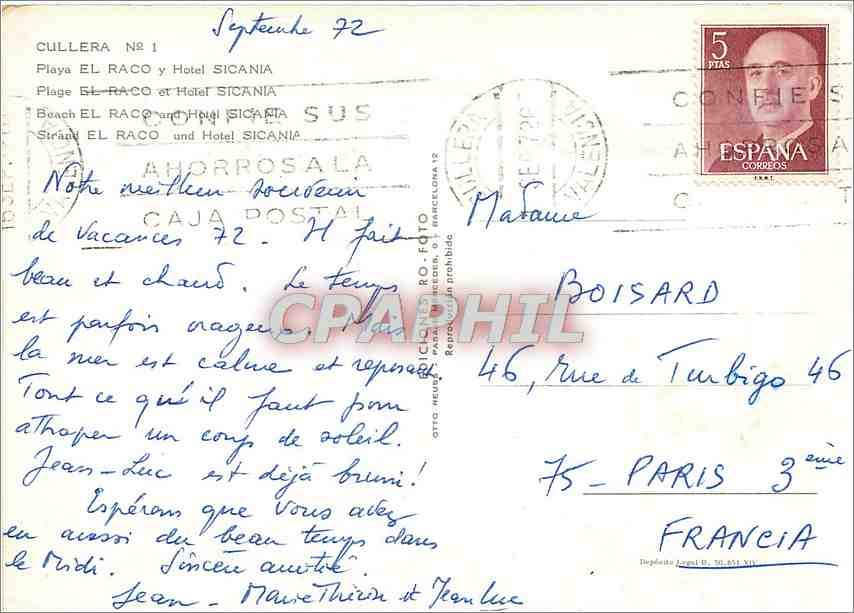 Septembre 72
CULLERA Nº 1
Playa EL RACO y Hotel SICANIA
Plage EL RACO et Hotel SICANIA
Beach EL RACO and Hotel SICANIA
Strand EL RACO und Hotel SICANIA
CONFIE SUS
AHORROS A LA
CAJA POSTAL
Notre meilleur souvenir
de vacances 72. Il fait
beau et chaud. Le temps
est parfois orageux. Mais
la mer est calme et reposante
Tout ce qu'il faut pour
attraper un coup de soleil.
Jean-Luc est déjà bruni!
Espérons que vous avez
eu aussi du beau temps dans
le Midi. Sincère amitié.
Jean - Marie Thérèse et Jean Luc
EDICIONES RO-FOTO
Reproducción prohibida
CPAPHIL
CULLERA
VALENCIA
5
PTAS
ESPAÑA
CORREOS
F.N.M.T.
CONFIE S
Madame
BOISARD
46, rue de Turbigo 46
75 - PARIS 3ème
FRANCIA
Depósito Legal B. 50.851 XIV